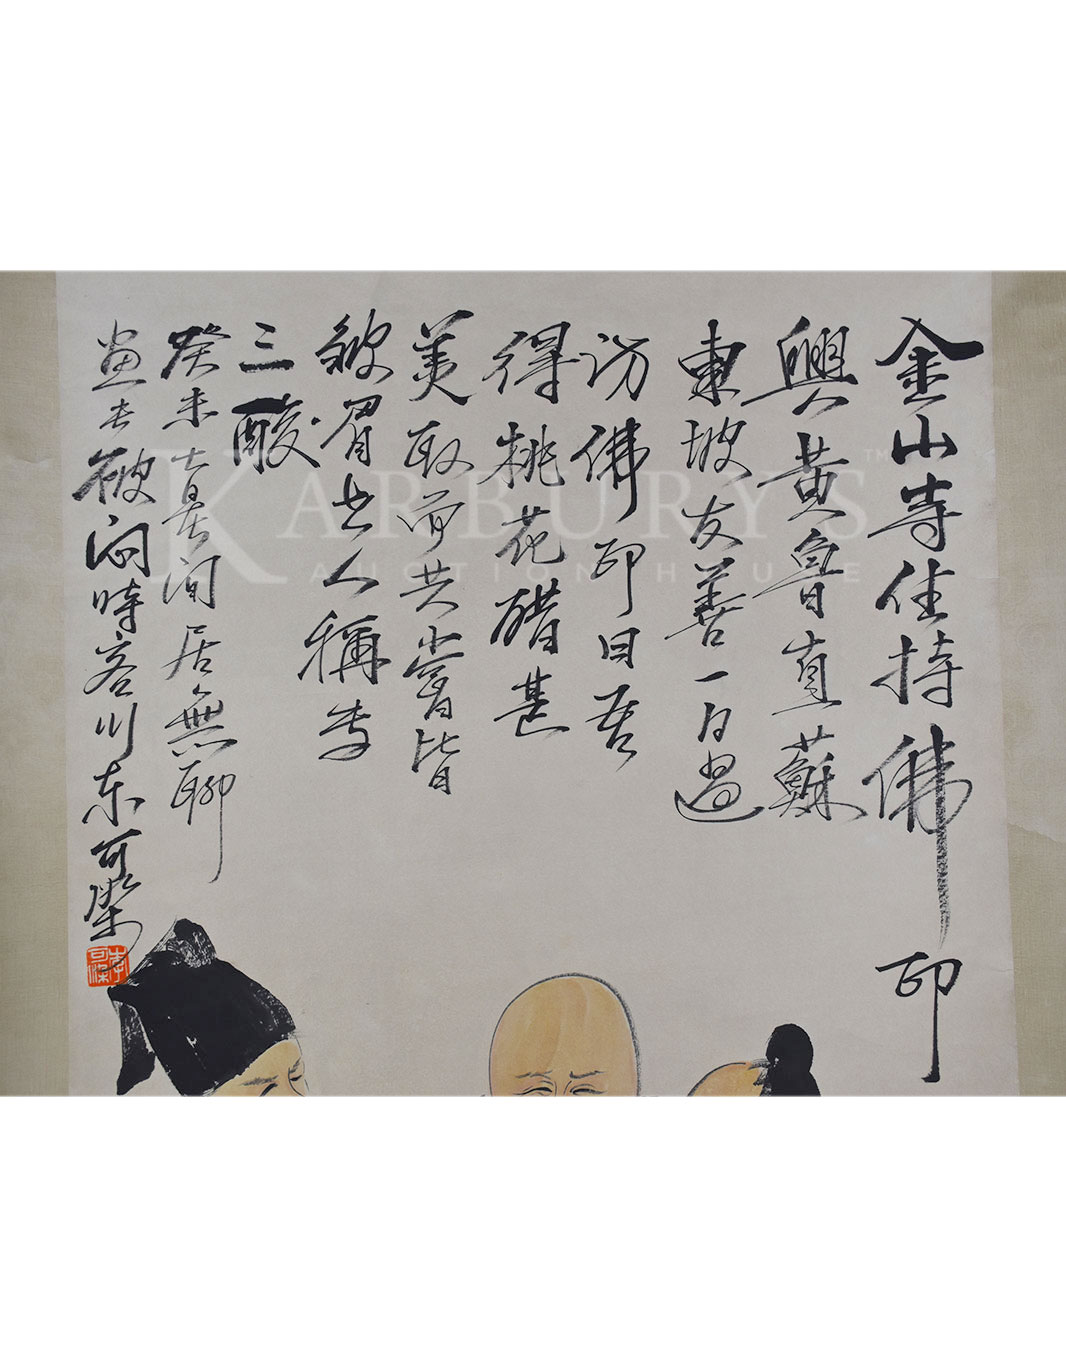 金山寺住持佛印
與黃魯直蘇
東坡友善一日過
訪佛印曰吾
得桃花醋甚
美取而共嘗皆
皺眉世人稱為
三酸
癸未大暑閒居無聊
畫破悶時客川東可染
李可染
KARBURY'S™
AUCTION HOUSE